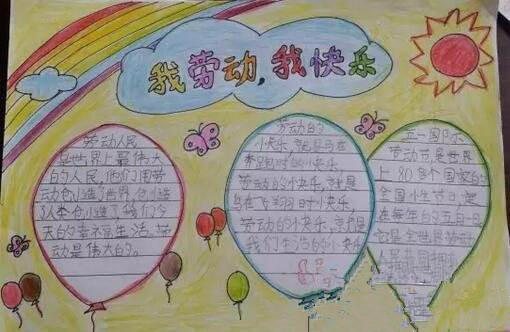 我劳动,我快乐
劳动人民
是世界上最伟大
的人民,他们用劳
动创造了世界,创造
了人类创造了我们今
天的幸福生活,劳
动是伟大的。
劳动的
小快乐,就是马在
奔跑时的小快乐
劳动的小快乐,就是
鸟在飞翔时小快乐,
劳动的小快乐,就是
我们生活的小快乐
五一国际
劳动节是世界
上80多个国家的
全国性节日,定
在每年的五月一日
它是全世界劳动
人民共同拥有